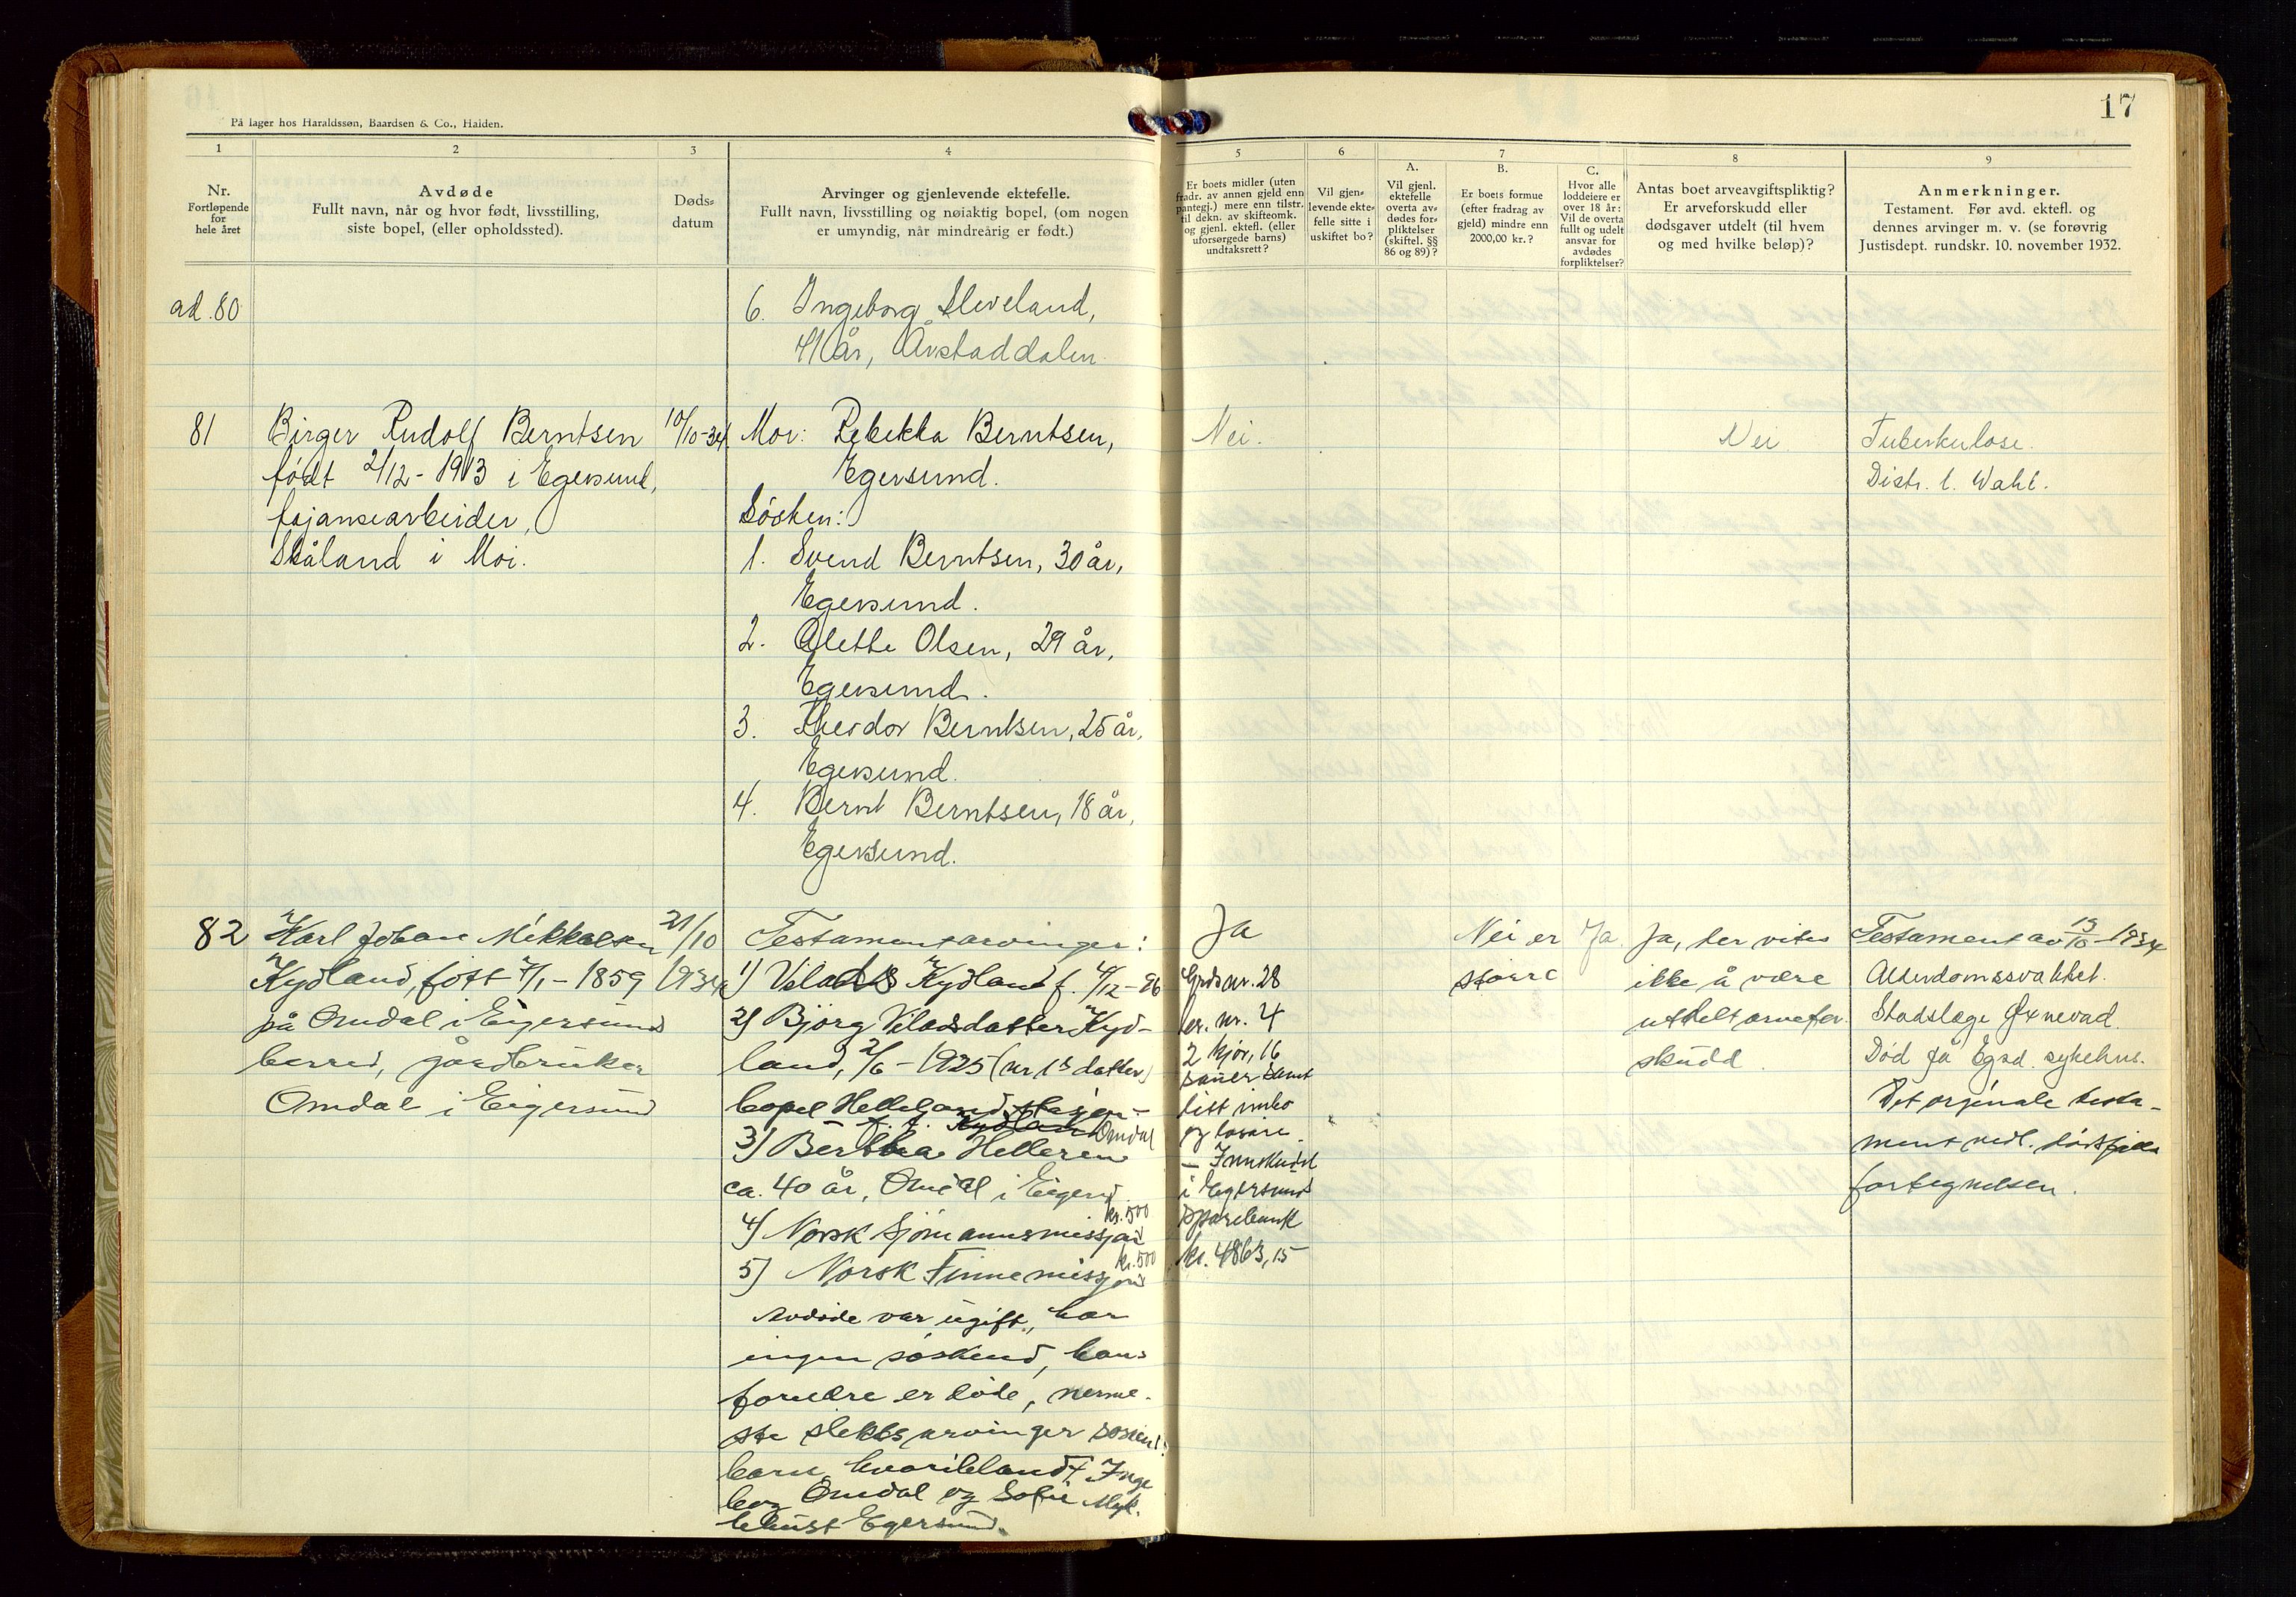 17
På lager hos Haraldssøn, Baardsen & Co., Halden.
1
Nr.
Fortløpende
for
hele året
2
Avdøde
Fullt navn, når og hvor født, livsstilling,
siste bopel, (eller opholdssted).
3
Døds-
datum
4
Arvinger og gjenlevende ektefelle.
Fullt navn, livsstilling og nøiaktig bopel, (om nogen
er umyndig, når mindreårig er født.)
5
Er boets midler (uten
fradr. av annen gjeld enn
pantegj.) mere enn tilstr.
til dekn. av skifteomk.
og gjenl. ektefl. (eller
uforsørgede barns)
undtaksrett?
6
Vil gjen-
levende ekte-
felle sitte i
uskiftet bo?
7
A.
Vil gjenl.
ektefelle
overta av-
dødes for-
pliktelser
(skiftel. §§
86 og 89)?
B.
Er boets formue
(efter fradrag av
gjeld) mindre enn
2000,00 kr.?
C.
Hvor alle
loddeiere er
over 18 år:
Vil de overta
fullt og udelt
ansvar for
avdødes
forpliktelser?
8
Antas boet arveavgiftspliktig?
Er arveforskudd eller
dødsgaver utdelt (til hvem
og med hvilke beløp)?
9
Anmerkninger.
Testament. Før avd. ektefl. og
dennes arvinger m. v. (se forøvrig
Justisdept. rundskr. 10. november 1932.
ad. 80
6. Ingeborg Sleveland,
41 år, Årstaddalen
81
Birger Rudolf Berntsen
født 2/12 - 1913 i Egersund,
fajansearbeider,
Skåland i Moi.
10/10-34
Mor: Rebekka Berntsen,
Egersund.
Søsken:
1. Svend Berntsen, 30 år,
Egersund.
2. Alette Olsen, 29 år,
Egersund.
3. Theodor Berntsen, 25 år,
Egersund.
4. Bernt Berntsen, 18 år,
Egersund.
Nei.
Nei
Tuberkulose.
Distr. l. Wahl.
82
Karl Johan Mikkalsen
Kydland, født 7/1 - 1859
på Omdal i Eigersund
herred, gårdbruker
Omdal i Eigersund
21/10
1934
Testamentarvinger:
1) Vilads Kydland f. 4/12 - 96
2) Bjørg Viladsdatter Kyd-
land, 2/6 - 1925 (nr 1s datter)
bopel Helleland stasjon -
Kydland Omdal
3) Bertha Helleren
ca. 40 år, Omdal i Eigers.
kr. 500
4) Norsk Sjømannsmisjon
kr. 500
5) Norsk Finnemisjon
Avdøde var ugift, har
ingen søskend, hans
foreldre er døde, nerme-
ste slektsarvinger søskend-
barn, hvoriblandt Inge
borg Omdal og Sofie Myk-
lebust Egersund.
Ja
Grds nr. 28
br. nr. 4
2 kjør, 16
sauer samt
litt innbo
og løsøre.
- Innskudd
i Egersund
Sparebank
kr. 4863,15
Nei er
større
Ja.
Ja, der vites
ikke å være
utdelt arvefor-
skudd
Testament av 13/10 - 1934
Alderdomssvakhet.
Stadslæge Øxnevad.
Død på Egsd. sykehus.
Det orginale testa-
ment vedl. dødsfalls
fortegnelsen.